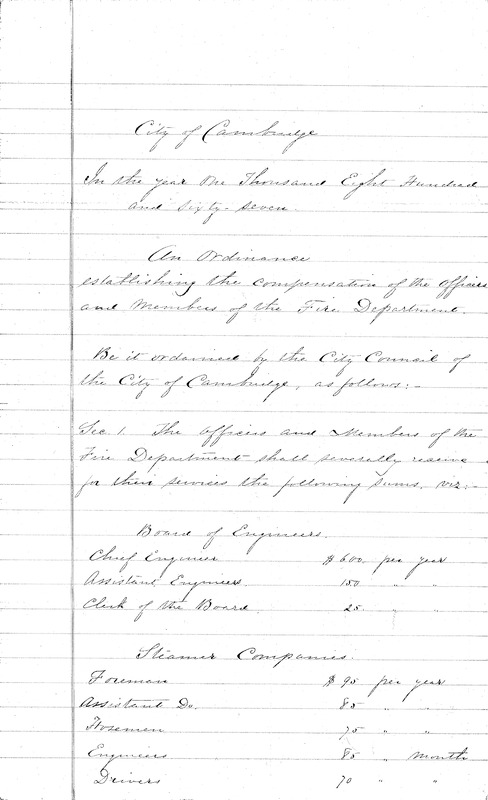 City of Cambridge
In the year One Thousand Eight Hundred
and sixty-seven.
An Ordinance
establishing the compensation of the officers
and Members of the Fire Department.
Be it ordained by the City Council of
the City of Cambridge, as follows:-
Sec 1. The officers and Members of the
Fire Department shall severally receive
for their services the following sums, viz:-
Board of Engineers.
Chief Engineer $600. per year
Assistant Engineers. 150 " "
Clerk of the Board. 25 " "
Steamer Companies.
Foreman $95 per year
Assistant Do. 85 " "
Hosemen 75 " "
Engineers 85 " Month
Drivers 70 " "